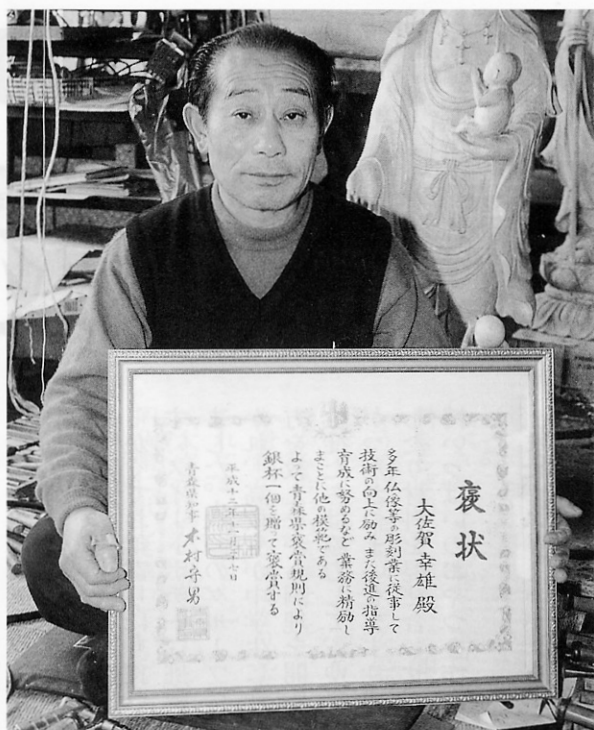 褒状
大佐賀幸雄殿
多年仏像等の彫刻業に従事して
技術の向上に励み また後進の指導
育成に努めるなど 業務に精励し
まことに他の模範である
よって青森県褒賞規則により
銀杯一個を贈って褒賞する
平成十二年十一月二十七日
青森県知事 木村守男